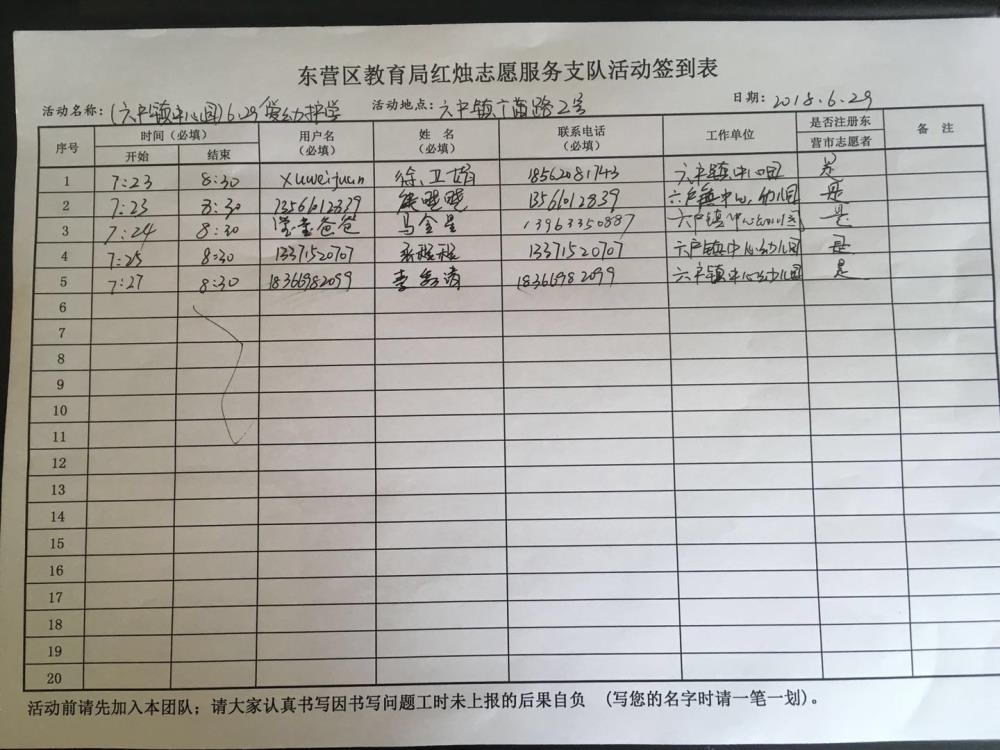 东营区教育局红烛志愿服务支队活动签到表
活动名称：(六户镇中心园)6.29爱幼护学 活动地点：六户镇 路2号 日期：2018.6.29
序号 时间（必填） 用户名（必填） 姓名（必填） 联系电话（必填） 工作单位 是否注册东营市志愿者 备注
开始 结束
1 7:23 8:30 xuweijuan 徐卫娟 18562081743 六户镇中心园 是
2 7:23 8:30 13561012839 晓晓 13561012839 六户镇中心幼儿园 是
3 7:24 8:30 莹莹爸爸 马金星 13963350887 六户镇中心幼儿园 是
4 7:25 8:30 13371520707 程程 13371520707 六户镇中心幼儿园 是
5 7:27 8:30 18366982099 李 涛 18366982099 六户镇中心幼儿园 是
6
7
8
9
10
11
12
13
14
15
16
17
18
19
20
活动前请先加入本团队；请大家认真书写因书写问题工时未上报的后果自负 （写您的名字时请一笔一划）。